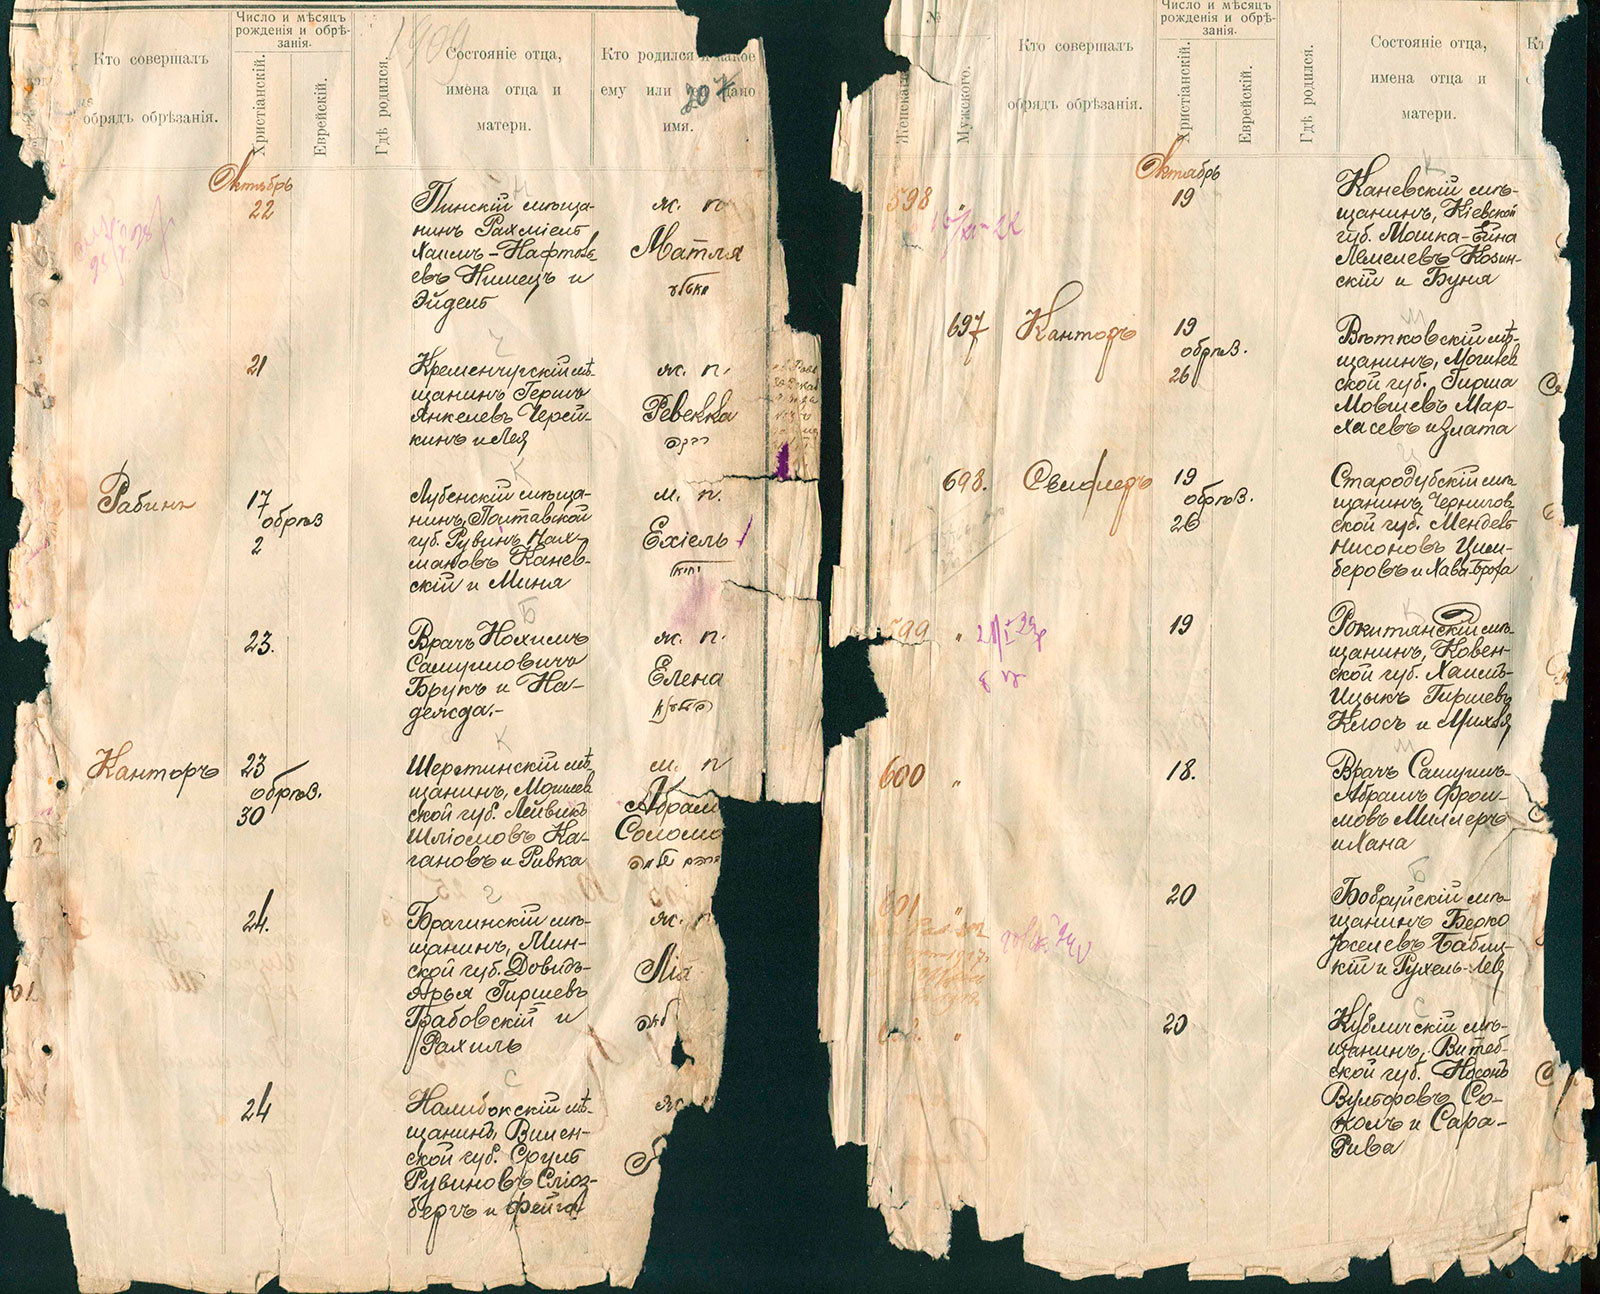 1909
Кто совершалъ
обрядъ обрѣзанія.
Число и мѣсяцъ
рожденія и обрѣ-
занія.
Христіанскій.
Еврейскій.
Гдѣ родился.
Состояніе отца,
имена отца и
матери.
Кто родился и какое
ему или дано
имя.
207
Октябрь
22
Пинскій мѣща-
нинъ Рахміель
Хаимъ-Нафтоль-
евъ Нимецъ и
Эйдель
ж. п
Матля
21
Кременчугскій мѣ-
щанинъ Гершъ
Янкелевъ Черей-
кинъ и Лея
ж. п.
Ревекка
רבקה
Рабинъ
17
обрѣз
2
Лубенскій мѣща-
нинъ, Полтавской
губ. Рувинъ Нах-
мановъ Канев-
скій и Миня
м. п.
Ехіель
יחיאל
23.
Врачъ Нохимъ
Самуиловичъ
Брукъ и На-
дежда.-
ж. п.
Елена
Канторъ
23
обрѣз.
30
мѣ-
щанинъ, Могилев
ской губ. Лейвикъ
Шліомовъ Ка-
гановъ и Ривка
м. п
Абрам
Соломо
24.
Брагинскій мѣ-
щанинъ, Мин-
ской губ. Довидъ-
Арья Гиршевъ
Грабовскій и
Рахиль
ж. п
Лія
24
Налибокскій мѣ-
щанинъ, Вилен-
ской губ. Сруль
Рувиновъ Сліоз-
бергъ и Фейга
ж.
№
Женскаго.
Мужского.
Кто совершалъ
обрядъ обрѣзанія.
Число и мѣсяцъ
рожденія и обрѣ-
занія.
Христіанскій.
Еврейскій.
Гдѣ родился.
Состояніе отца,
имена отца и
матери.
Октябрь
598 "
19
Каневскій мѣ-
щанинъ, Кіевской
губ. Мошка-Ейна
Лемелевъ Козин-
скій и Буня
697
Канторъ
19
обрѣз.
26
Вѣтковскій мѣ-
щанинъ, Могилев
ской губ. Гирша
Мовшевъ Мар-
хасевъ и Злата
698.
19
обрѣз.
26
Стародубскій мѣ-
щанинъ, Чернигов
ской губ. Мендель
Нисоновъ Цим-
беровъ и Хава-Броха
599 "
19
Рокитянскій мѣ-
щанинъ, Ковен-
ской губ. Хаимъ-
Ицыкъ Гиршевъ
Клосъ и
600 "
18.
Врачъ Самуилъ-
Абрамъ Фрои-
мовъ Миллеръ
и Хана
601 "
20
Бобруйскій мѣ-
щанинъ Берко
Іоселевъ
и Рухель-Лея
602. "
20
Кубличскій мѣ-
щанинъ, Витеб-
ской губ. Носонъ
Вульфовъ Со-
колъ и Сара-
Рива